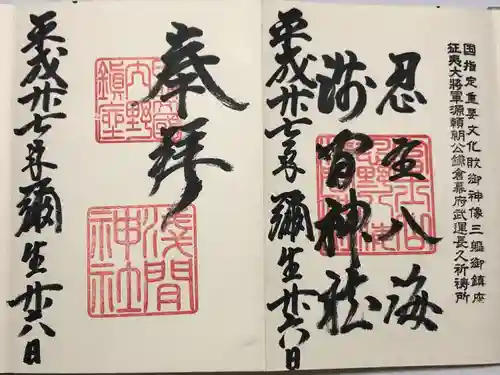 国指定重要文化財御神像三軀御鎮座
征夷大將軍源頼朝公鎌倉幕府武運長久祈祷所
忍埜八海
淺間神社
平成廿七年彌生廿八日
奉拝
内野
鎮座
浅間
神社
平成廿七年彌生廿八日